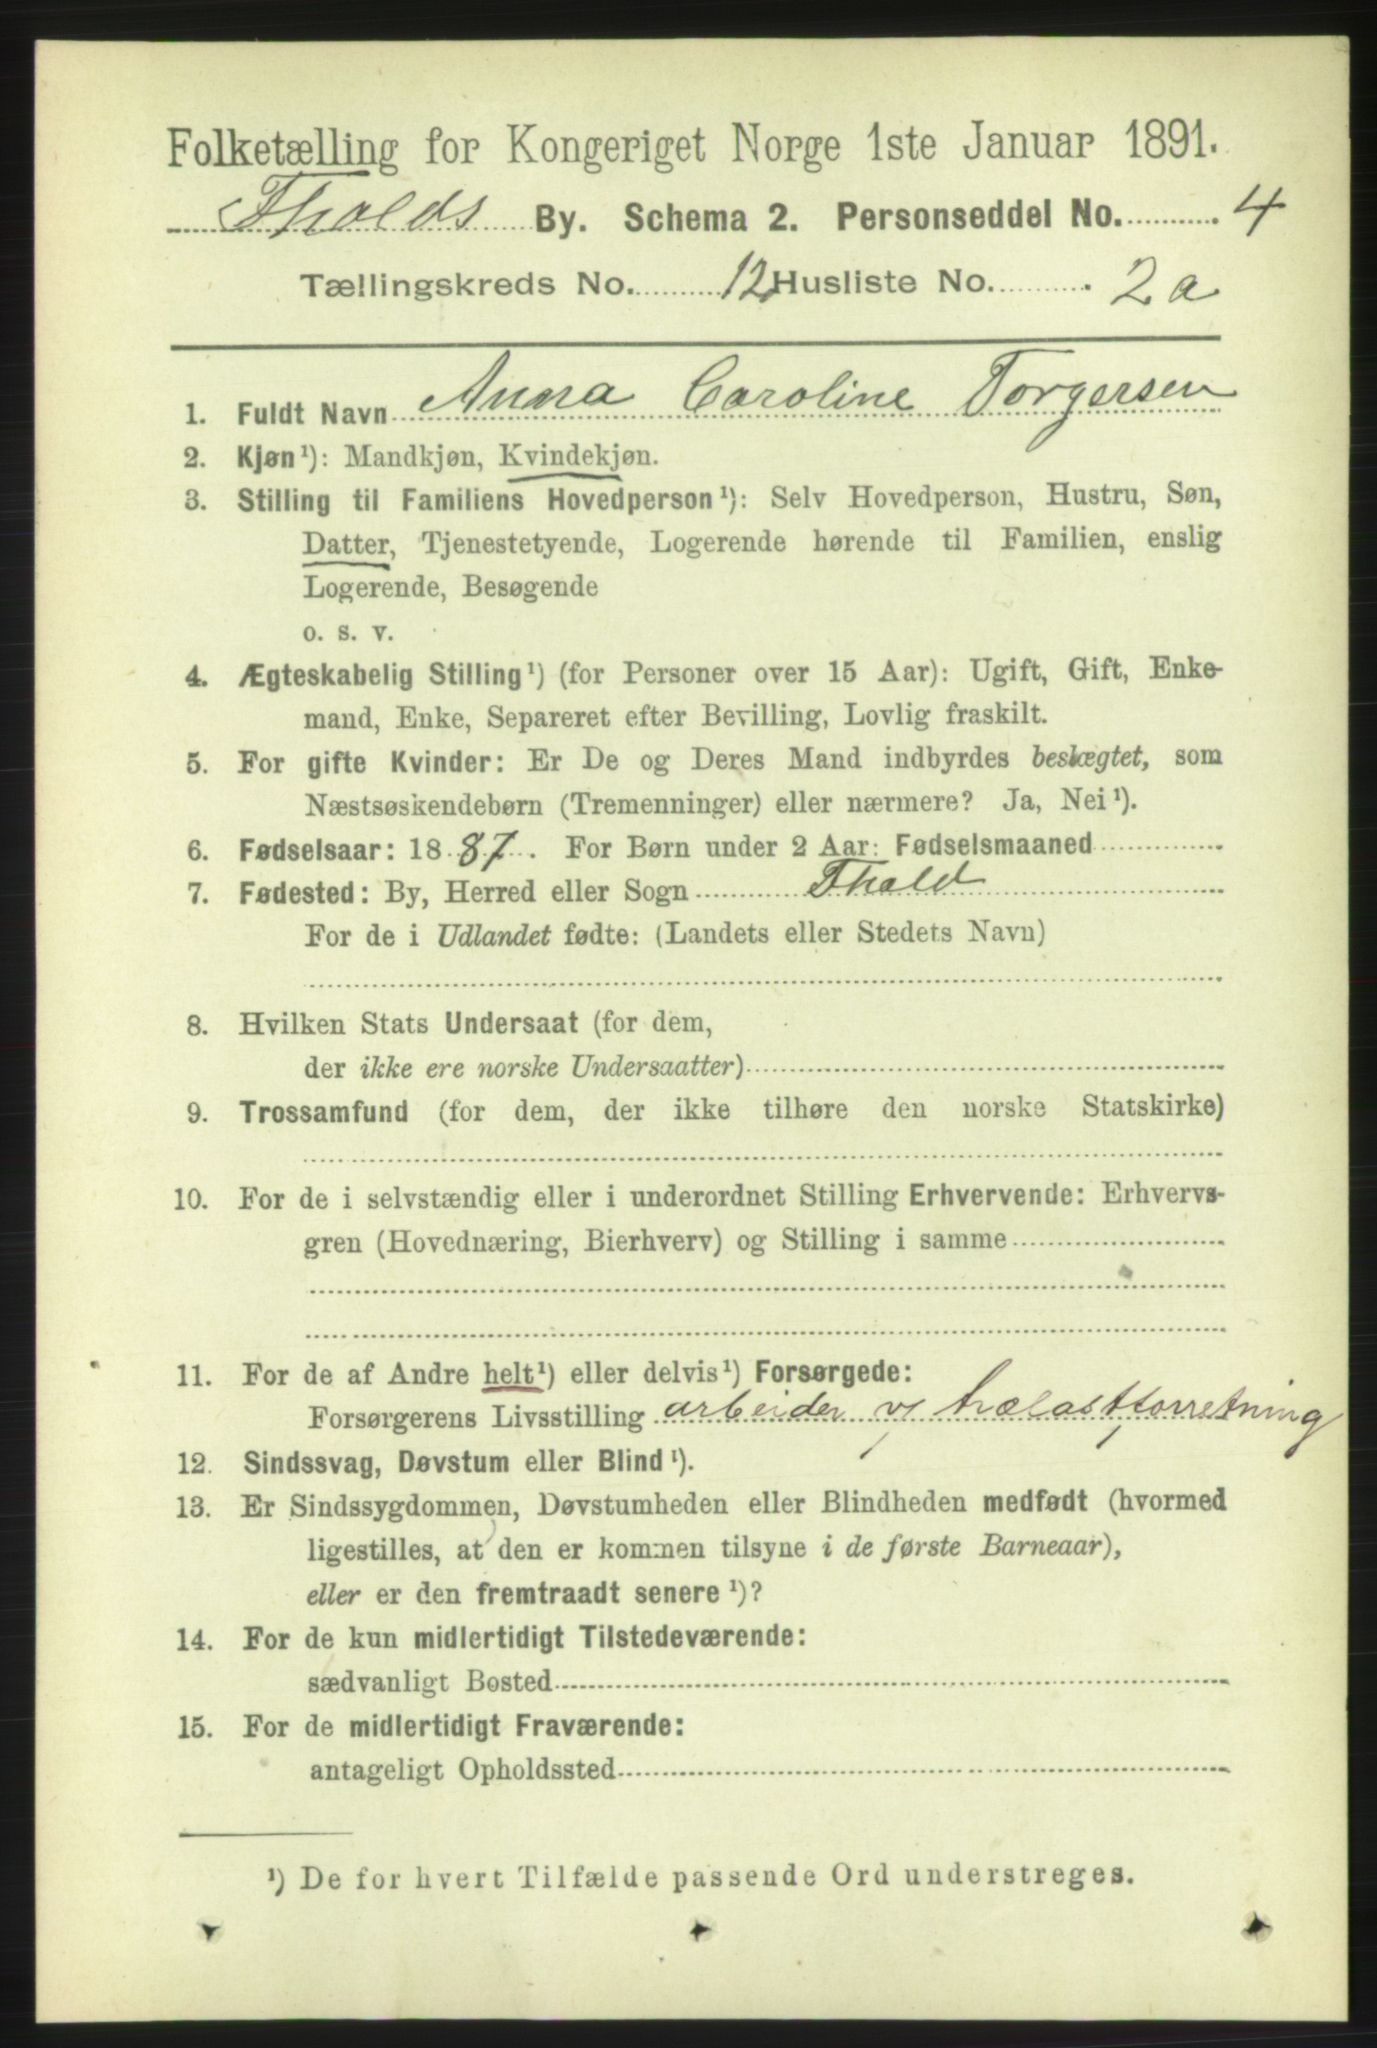 Folketælling for Kongeriget Norge 1ste Januar 1891.
Fhalds By. Schema 2. Personseddel No. 4
Tællingskreds No. 12 Husliste No. 2a
1. Fuldt Navn Anna Caroline Torgersen
2. Kjøn¹): Mandkjøn, Kvindekjøn.
3. Stilling til Familiens Hovedperson¹): Selv Hovedperson, Hustru, Søn,
Datter, Tjenestetyende, Logerende hørende til Familien, enslig
Logerende, Besøgende
o. s. v.
4. Ægteskabelig Stilling¹) (for Personer over 15 Aar): Ugift, Gift, Enke-
mand, Enke, Separeret efter Bevilling, Lovlig fraskilt.
5. For gifte Kvinder: Er De og Deres Mand indbyrdes beslægtet, som
Næstsøskendebørn (Tremenninger) eller nærmere? Ja, Nei¹).
6. Fødselsaar: 1887. For Børn under 2 Aar: Fødselsmaaned
7. Fødested: By, Herred eller Sogn Fhald
For de i Udlandet fødte: (Landets eller Stedets Navn)
8. Hvilken Stats Undersaat (for dem,
der ikke ere norske Undersaatter)
9. Trossamfund (for dem, der ikke tilhøre den norske Statskirke)
10. For de i selvstændig eller i underordnet Stilling Erhvervende: Erhvervs-
gren (Hovednæring, Bierhverv) og Stilling i samme
11. For de af Andre helt¹) eller delvis¹) Forsørgede:
Forsørgerens Livsstilling arbeider v/ trælastforretning
12. Sindssvag, Døvstum eller Blind¹).
13. Er Sindssygdommen, Døvstumheden eller Blindheden medfødt (hvormed
ligestilles, at den er kommen tilsyne i de første Barneaar),
eller er den fremtraadt senere¹)?
14. For de kun midlertidigt Tilstedeværende:
sædvanligt Bosted
15. For de midlertidigt Fraværende:
antageligt Opholdssted
¹) De for hvert Tilfælde passende Ord understreges.